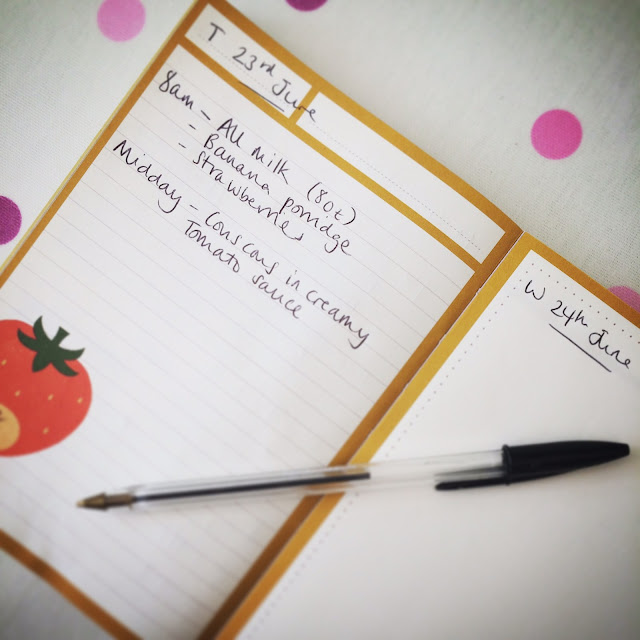 T 23rd June
8am - All milk (8oz)
- Banana porridge
- Strawberries
Midday - Cous cous in creamy
Tomato sauce
W 24th June